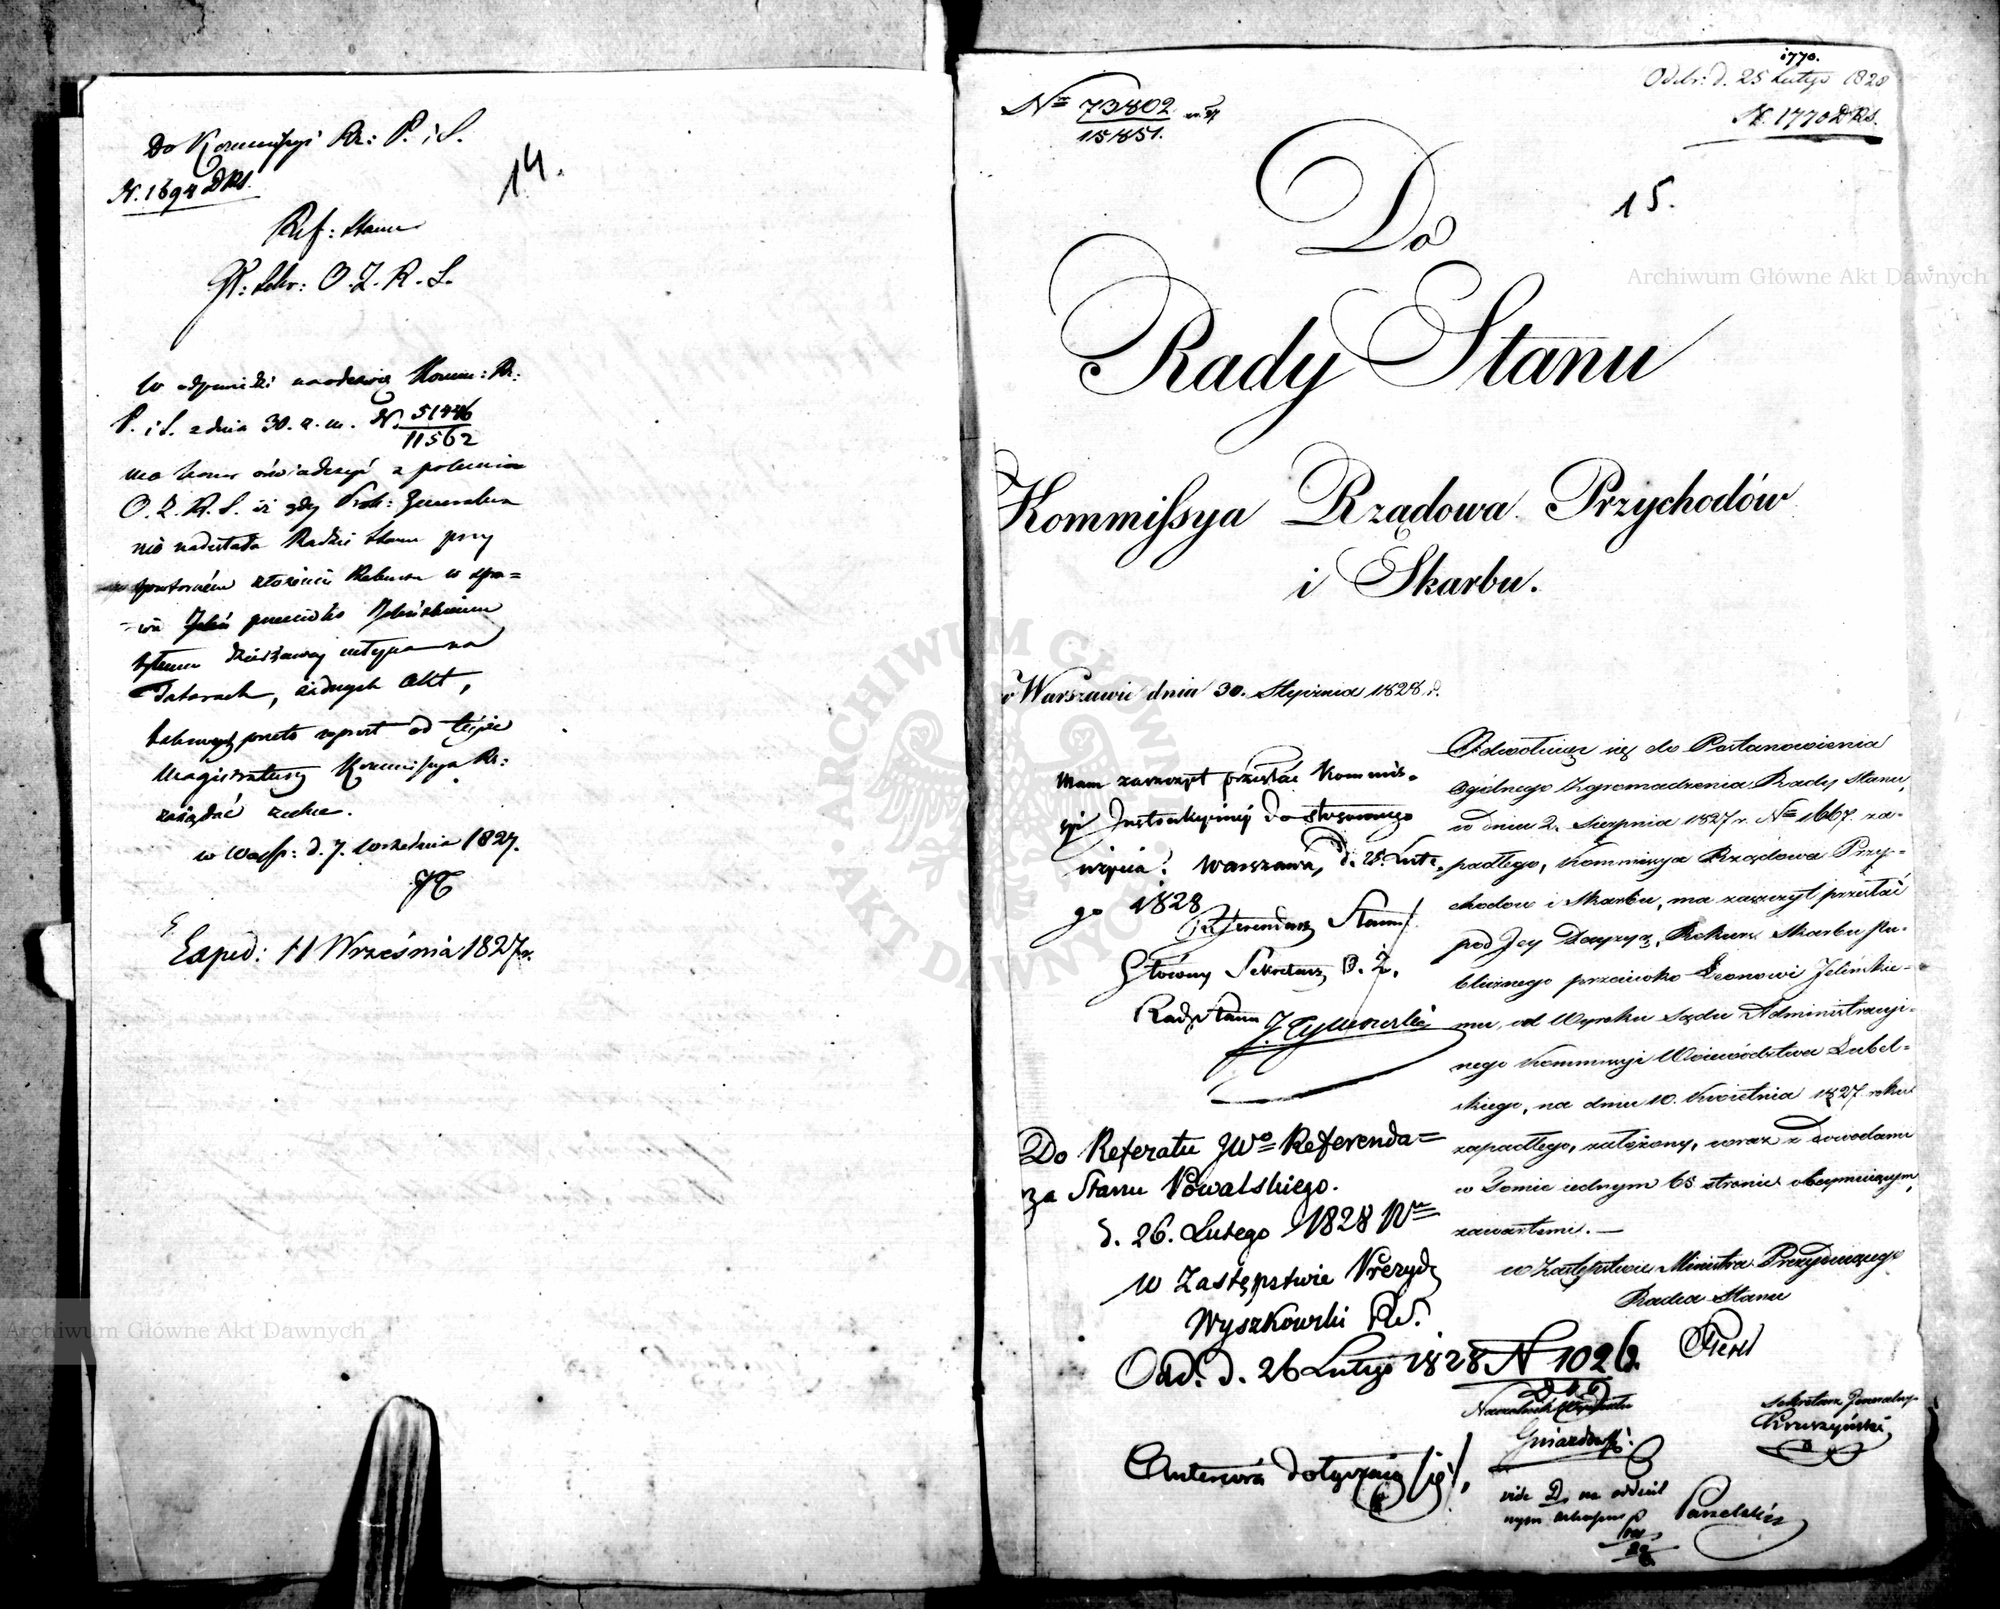 Do Kommissyi Rz: P. i S.
N. 1694 DRS.
14.
Ref: Stanu
Gł. Sekr: O. Z. R. S.
W odpowiedzi na odezwę Komm: Rz:
P. i S. z dnia 30. z. m. N. 51446/11562
ma honor oświadczyć z polecenia
O. Z. R. S. iż gdy Prok: Generalna
nie nadesłała Radzie Stanu przy
złożeniu Rekursu w spra=
wie przeciwko Jelińskiemu
bytemu dzierżawcy
Tatarach, żadnych Akt,
takowych przeto wprost od tejże
Magistratury Kommissya Rz:
zażądać zechce.
w Warsz: d. 7. Września 1827.
Exped: 11 Września 1827 r.
1770.
Odebr: d. 25 Lutego 1828
N. 1770 DRS.
Nro 73802/15851.
15.
Do
Rady Stanu
Kommissya Rządowa Przychodów
i Skarbu.
w Warszawie dnia 30. Stycznia 1828 r.
Odwołując się do Postanowienia
Ogólnego Zgromadzenia Rady Stanu,
w dniu 2. Sierpnia 1827 r. Nro 1667. za-
padłego, Kommissya Rządowa Przy-
chodów i Skarbu, ma zaszczyt przesłać
pod Jey Decyzyą, Rekurs Skarbu Pu-
blicznego przeciwko Leonowi Jelińskie-
mu, od Wyroku Sądu Administracyi-
nego Kommissyi Województwa Lubel-
skiego, na dniu 10. Kwietnia 1827 roku
zapadłego, założony, wraz z dowodami
w Tomie iednym 65 stronic obeymuiącym,
zawartemi. —
w Zastępstwie Ministra Prezyduiącego
Radca Stanu
Sekretarz Jeneralny
Kruszyński
Mam zaszczyt przesłać Kommis-
syi Instrukcyiney do stosownego
użycia. Warszawa, d. 25. Lute-
go 1828
Referendarz Stanu
Główny Sekretarz O. Z.
Rady Stanu J. Tymowski
Do Referatu JWo Referenda=
rza Stanu Kowalskiego.
d. 26. Lutego 1828 Nro
w Zastępstwie Prezyd:
Wyszkowski RS.
Odd. d. 26 Lutego 1828 N 1026.
Naczelnik Wydziału
Gniazdowski
vide D. na oddziel
nym